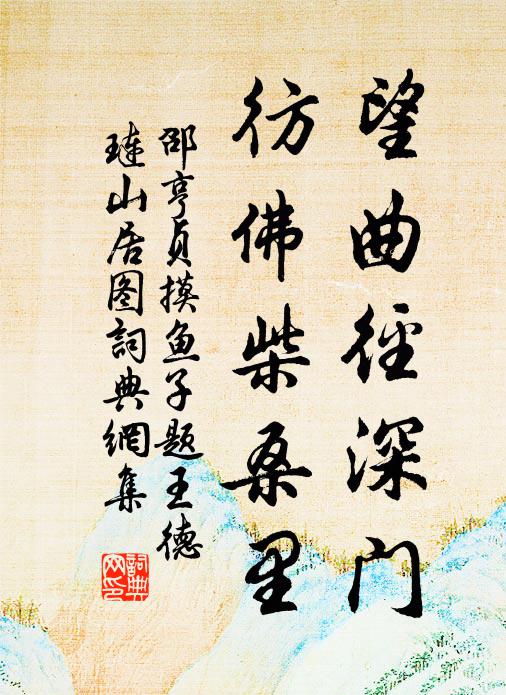 望曲径深门
彷佛柴桑里
邵亨贞摸鱼子题王德
琎山居图词典網集
詞典
网印